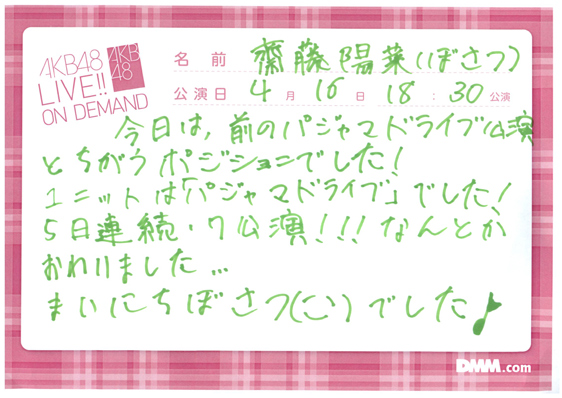 AKB48
LIVE!!
ON DEMAND
AKB
48
名前 齋藤陽菜(ぼさつ)
公演日 4月16日 18:30公演
今日は、前のパジャマドライブ公演
とちがうポジションでした!
ユニットは「パジャマドライブ」でした!
5日連続・7公演!!!なんとか
おわりました...
まいにちぼさつ(心)でした♪
DMM.com